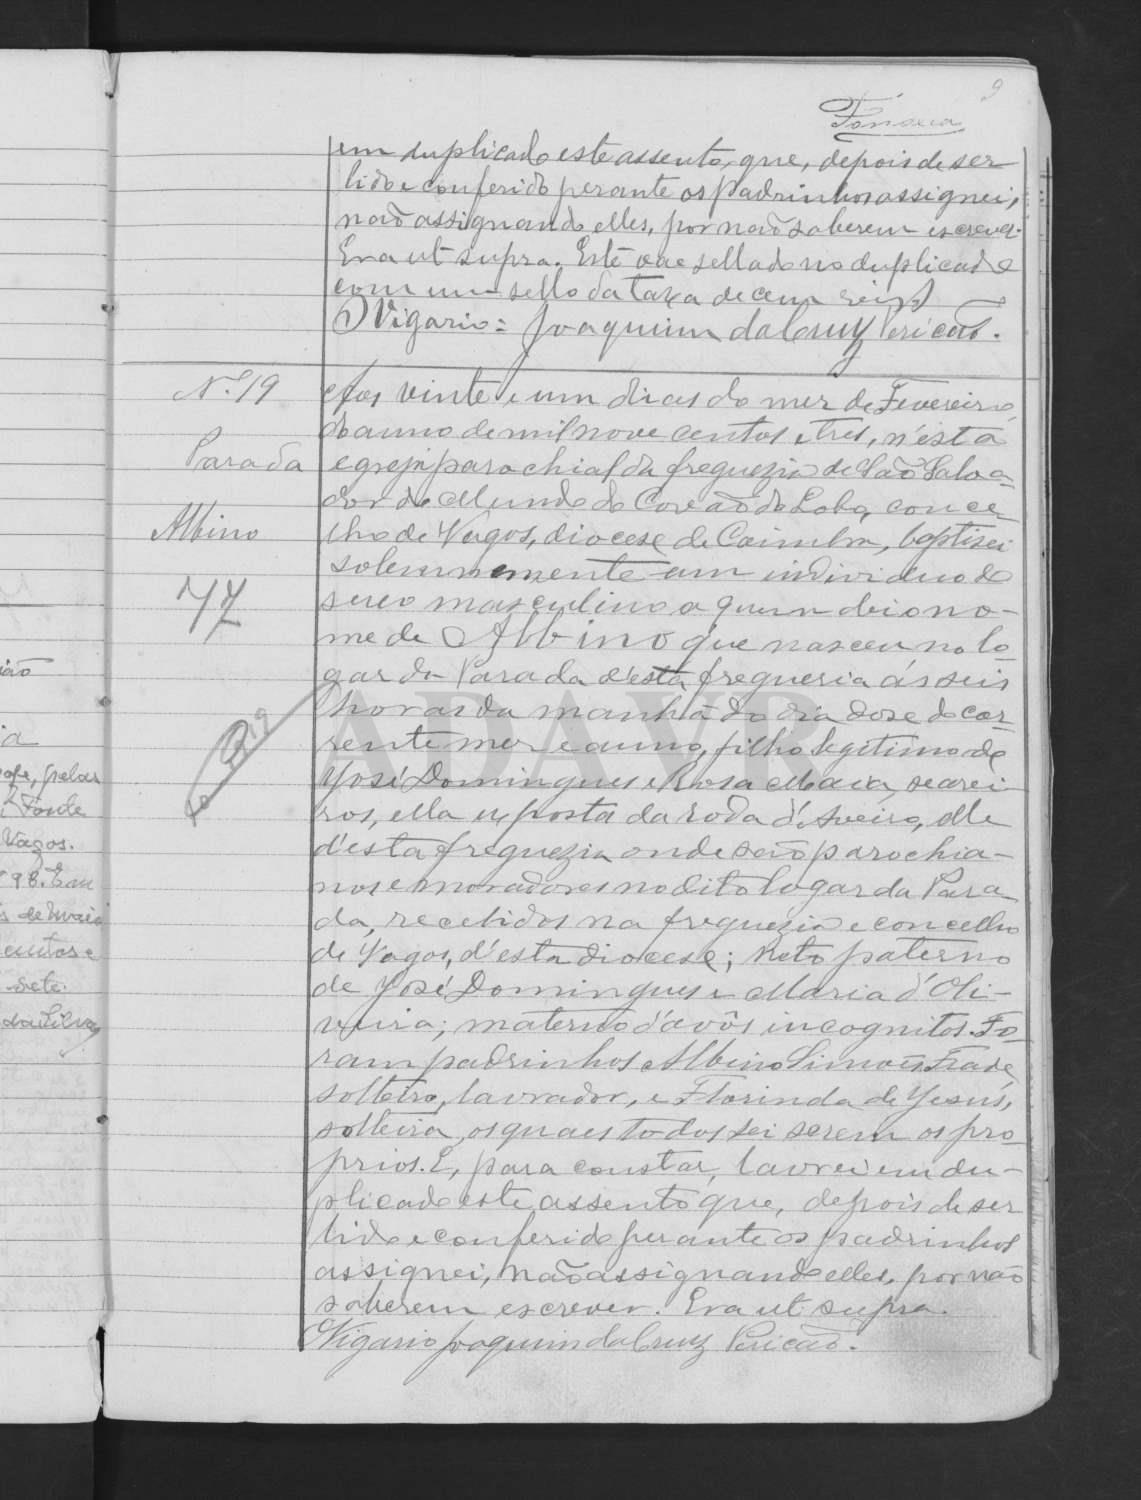 9
Fonseca
em duplicado este assento, que, depois de ser
lido e conferido perante os padrinhos assignei,
não assignando elles, por não saberem escrever.
Era ut supra. Este vae sellado no duplicado
com um sello da taxa de cem reis
O Vigario = Joaquim da Cruz Pericão.
N.º 19
Parada
Albino
77
Aos vinte e um dias do mez de Fevereiro
do anno de mil nove centos e tres, n'esta
egreja parochial da freguezia de São Salva-
dor do Mundo do Covão do Lobo, conce-
lho de Vagos, diocese de Coimbra, baptisei
solemnemente um individuo do
sexo masculino a quem dei o no-
me de Albino que nasceu no lo-
gar da Parada d'esta freguezia ás seis
horas da manhã do dia doze do cor-
rente mez e anno, filho legitimo de
José Domingues e Rosa Maria, searei-
ros, ella exposta da roda d'Aveiro, elle
d'esta freguezia onde são parochia-
nos e moradores no dito logar da Para-
da, recebidos na freguezia e concelho
de Vagos, d'esta diocese; neto paterno
de José Domingues e Maria d'Oli-
veira; materno d'avôs incognitos. Fo-
ram padrinhos Albino Simões Frade,
solteiro, lavrador, e Florinda de Jesus,
solteira, os quaes todos sei serem os pro-
prios. E, para constar, lavrei em du-
plicado este assento que, depois de ser
lido e conferido perante os padrinhos
assignei, não assignando elles, por não
saberem escrever. Era ut supra.
O Vigario Joaquim da Cruz Pericão.
ADAVR
pelas
Fonte
Vagos.
98. Em
de Maio
centos e
sete.
da Silva